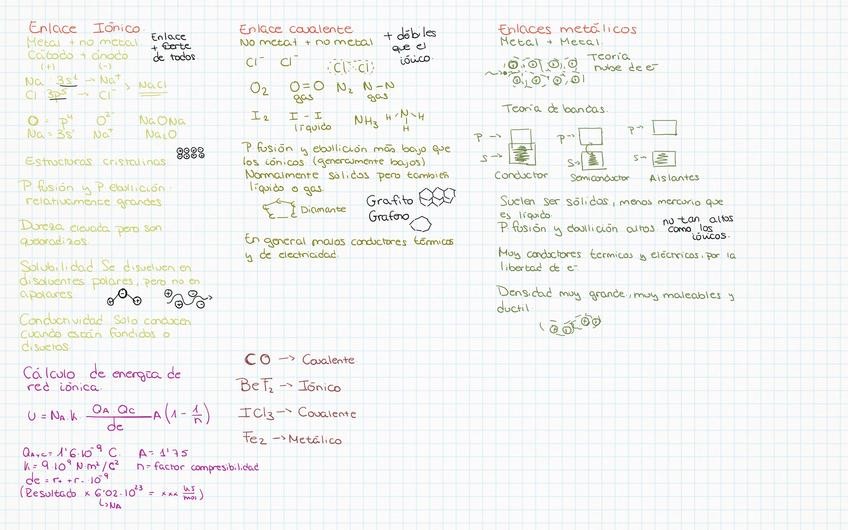 Enlace Iónico
Enlace
+ fuerte
de todos
Metal + no metal
Cátodo + anodo
(+) (-)
Na 3s¹ → Na⁺
Cl 3p⁵ → Cl⁻
NaCl
O = p⁴ O²⁻ NaONa
Na = 3s¹ Na⁺ Na₂O
Estructuras cristalinas
P fusión y P ebullición:
relativamente grandes
Dureza elevada pero son
quebradizos.
Solubilidad Se disuelven en
disolventes polares, pero no en
apolares
Conductividad Solo conducen
cuando están fundidos o
disueltos.
Cálculo de energía de
red iónica.
U = NA·k QA QC / de A (1 - 1/n)
QA,C = 1'6·10⁻⁹ C. A = 1'75
k = 9·10⁹ N·m²/C² n = factor compresibilidad
de = r₊ + r₋ 10⁻⁹
(Resultado × 6'02·10²³ = xxx kJ/mol)
↳NA
Enlace covalente
+ débiles
que el
iónico.
No metal + no metal
Cl⁻ Cl⁻ Cl Cl
O₂ O=O N₂ N-N
gas gas
I₂ I-I NH₃ H-N-H
líquido H
P fusión y ebullición más bajo que
los iónicos (generalmente bajos)
Normalmente sólidos pero también
líquido o gas.
Diamante
Grafito
Grafeno
En general malos conductores térmicos
y de electricidad.
CO → Covalente
BeF₂ → Iónico
ICl₃ → Covalente
Fe₂ → Metálico
Enlaces metálicos
Metal + Metal.
Teoría
nube de e⁻
Teoría de bandas.
P→ P→ P→
S→ S→ S→
Conductor Semiconductor Aislantes
Suelen ser sólidos, menos mercurio que
es líquido
P fusión y ebullición altos
no tan altos
como los
iónicos.
Muy conductores termicos y eléctricos, por la
libertad de e⁻
Densidad muy grande, muy maleables y
ductil.